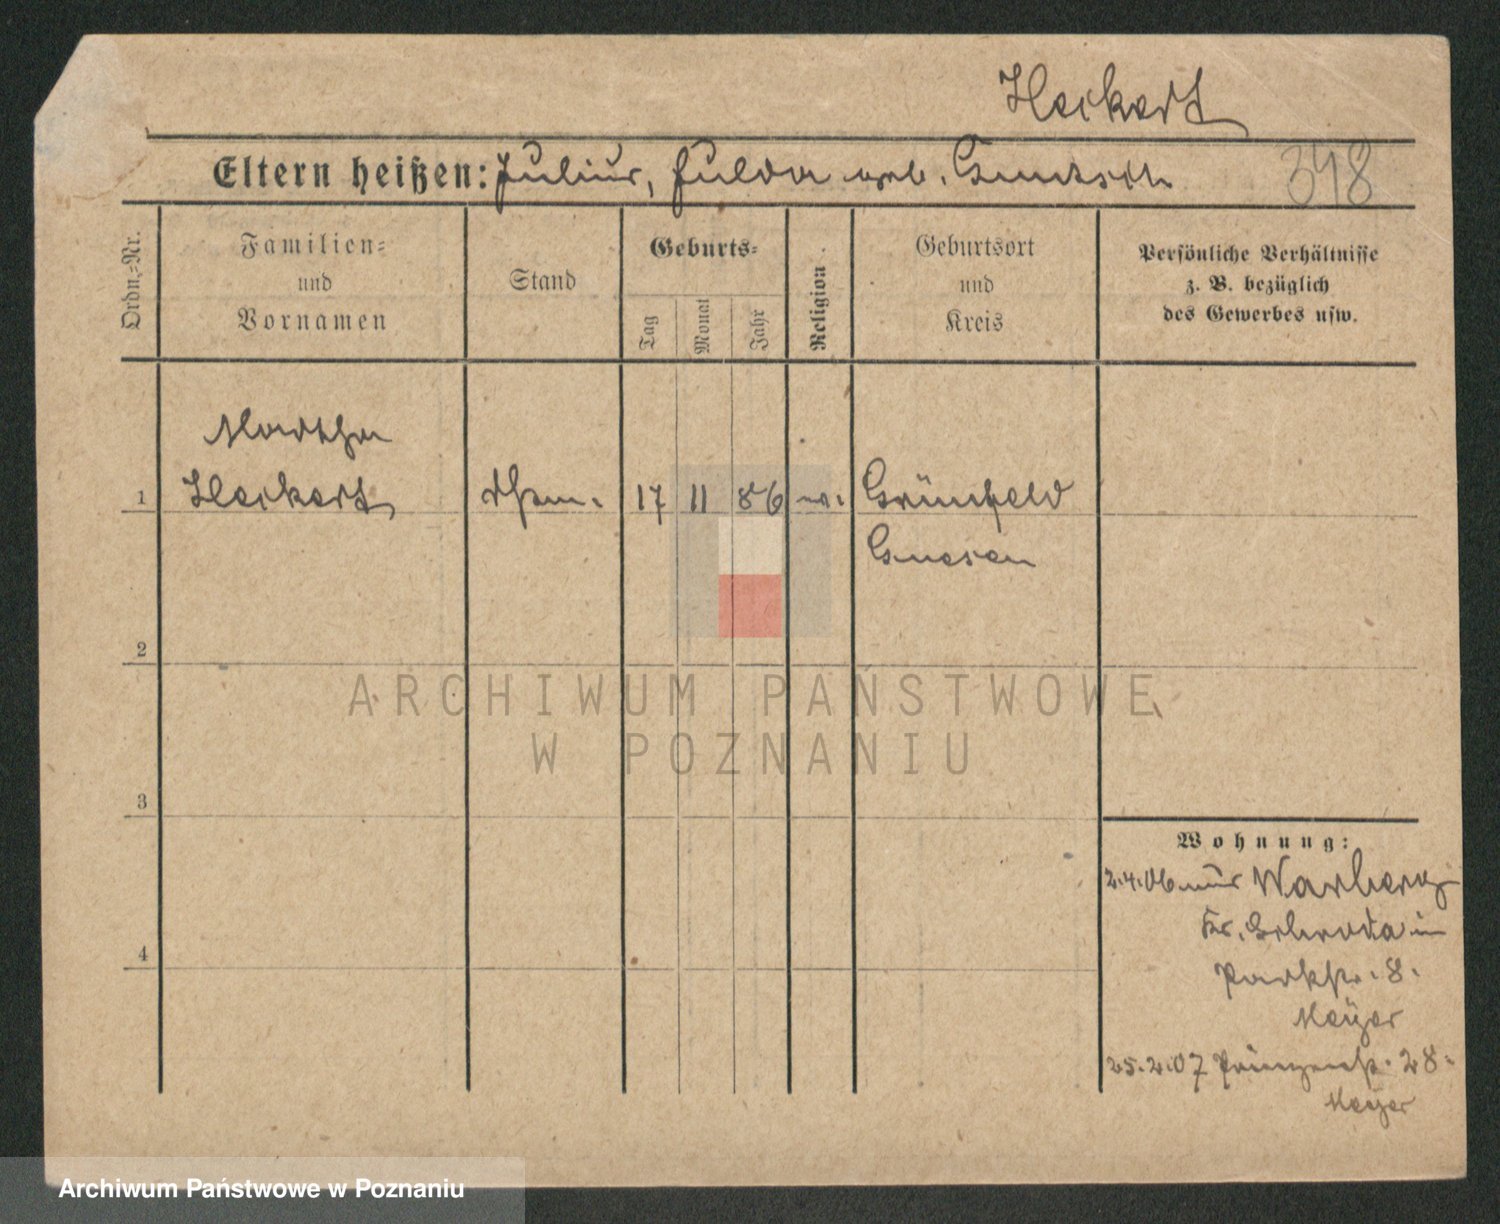 Heckert
Eltern heißen: Julius, Hulda geb.
348
Ordn.-Nr.
Familien-
und
Vornamen
Stand
Geburts-
Tag
Monat
Jahr
Religion
Geburtsort
und
Kreis
Persönliche Verhältnisse
z. B. bezüglich
des Gewerbes usw.
Martha
1 Heckert 17 11 86 Grünfeld
Gnesen
2
ARCHIWUM PAŃSTWOWE
W POZNANIU
3
Wohnung:
2.4.06 aus Warberg
Kr. Schroda in
4
Parkstr. 8.
Meyer
25.2.07 Prinzenstr. 28
Meyer
Archiwum Państwowe w Poznaniu